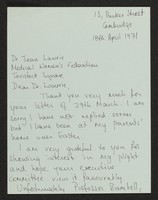 13, Parker Street
Cambridge
18th April 1971
Dr Jean Lawrie
Medical Women's Federation
Tavistock Square
Dear Dr. Lawrie,
Thank you very much for
your letter of 29th March. I am
sorry I have not replied sooner
but I have been at my parents'
home over Easter.
I am very grateful to you for
showing interest in my plight
and hope your executive
committee view it favourably.
Unfortunately Professor